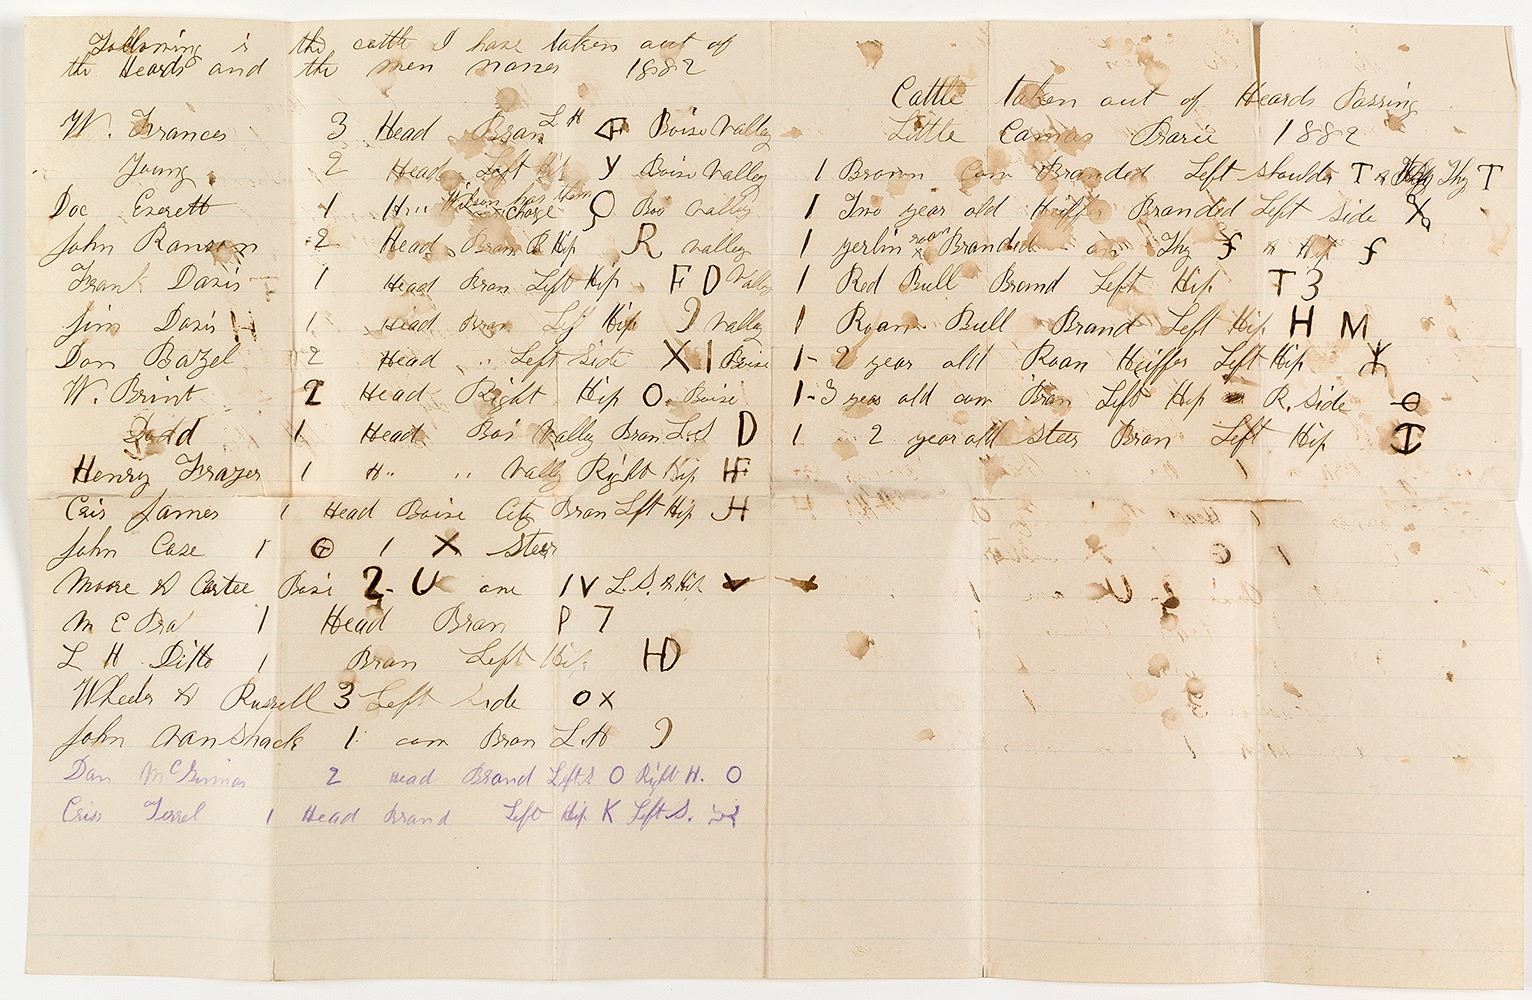 Following is the cattle I have taken out of
the Heards and the men names 1882
W. Frances 3 Head Bran L H F Boise Valley
Young 2 Head Left Hip Y Boise Valley
Doc Everett 1 H,, Wilson has them charge Boi Valley
John Ranson 2 Head Bran R Hip R Valley
Frank Davis 1 Head Bran Left Hip F D Valley
Jim Davis H 1 Head Bran Lef Hip Valley
Dan Bazel 2 Head ,, Left Side X I Boise
W. Brint 2 Head Right Hip O. Boise
Todd 1 Head Boi Vally Bran L. S D
Henry Frazer 1 H,, ,, Vally Right Hip HF
Cris James 1 Head Boise City Bran Lft Hip H
John Case 1 1 X Steer
Moore & Cartee Boisi 2- U one IV L. S. R Hip
M C Bra 1 Head Bran P 7
L H Ditto 1 Bran Left Hip HD
Wheeler & Russell 3 Left Side O X
John VanShack 1 cow Bran L. H
Dan 2 Head Brand Left S O Right H. O
Criss Terrel 1 Head Brand Left Hip K Left S.
Cattle taken out of Heards Passing
Little Camas Prarie 1882
1 Brown Cow Branded Left Shoulder T & Thy T
1 Two year old Heiffr Branded Left Side
1 yerlin roan Branded on Thy f & Hip f
1 Red Bull Brand Left Hip T 3
1 Roan Bull Brand Left Hip H M
1- 2 year old Roan Heiffer Left Hip
1- 3 year old cow Bran Left Hip R. Side
1 2 year old Steer Bran Left Hip